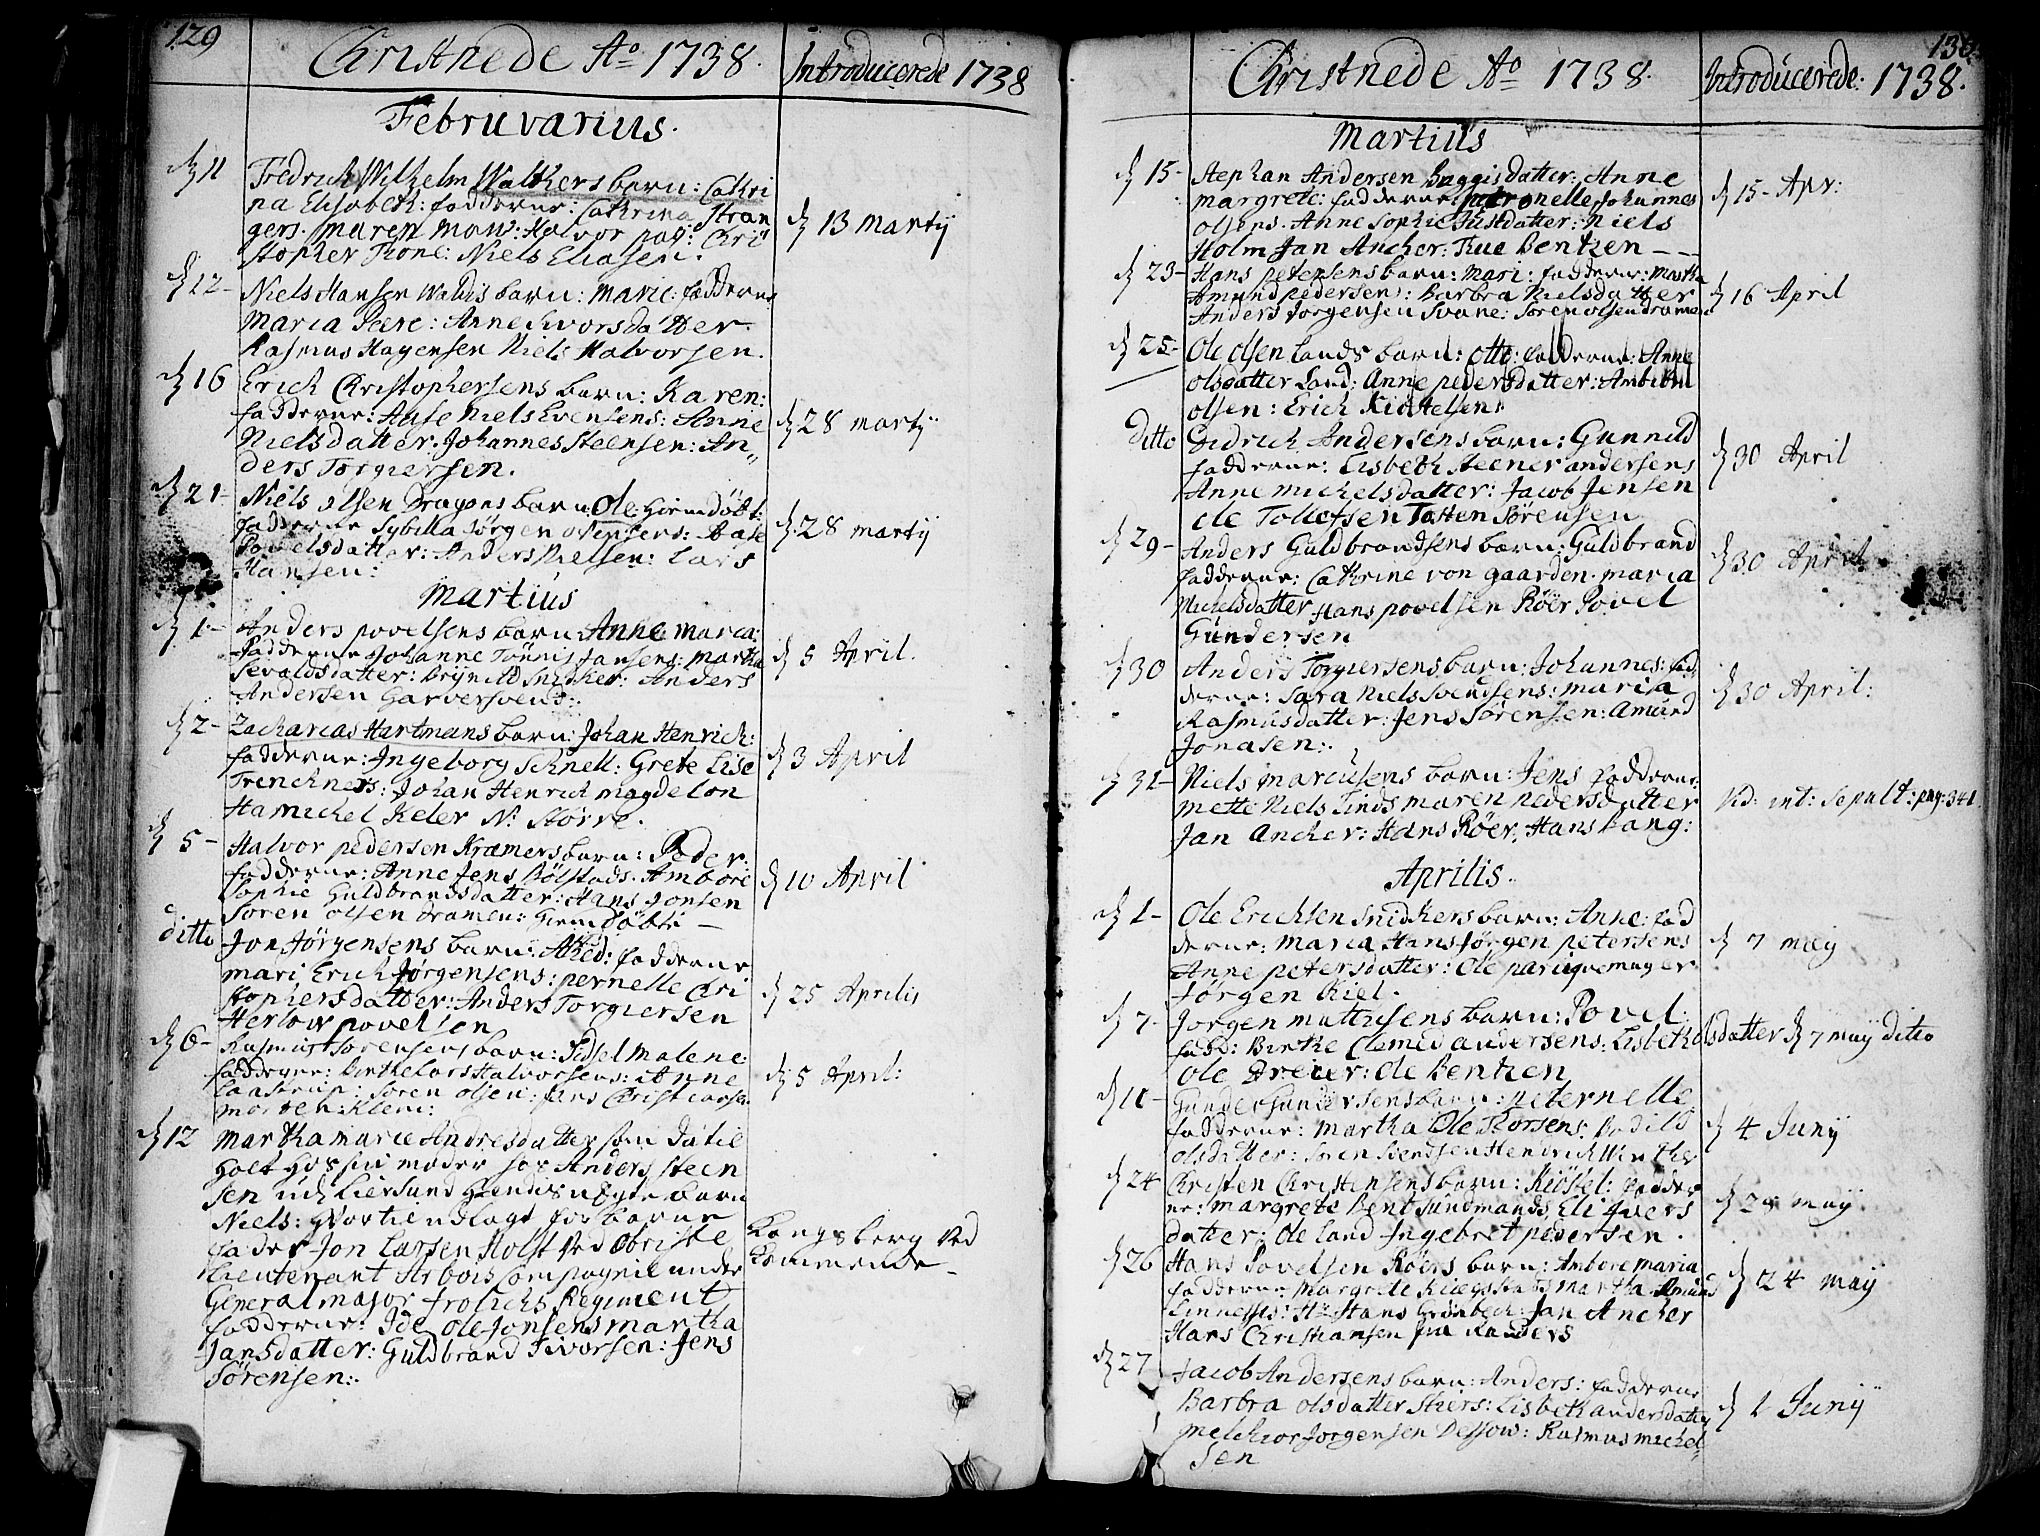 129
Christnede Ao 1738.
Introducerede 1738
Februvarius.
d 11 Fredrich Wilhelm Walthers barn: Cathri
na Elisabeth: fadderne: Cathrina Stran
gers. Maren Mow: Halvor pay: Chri
stopher Trone: Niels Eliasen.
d 13 Martij
d 12 - Niels Hansen Waldis barn: Marie: fadderne
Maria Pære: Anne Livorsdatter
Rasmus Hagensen Niels Halvorsen.
d 16 Erich Christophersens barn: Karen:
fadderne: Aase Niels Evensens: Anne
Nielsdatter: Johannes Steensen: An,,
ders Torgiersen.
d 28 martij
d 21 - Niels olsen Dragons barn: Ole hiemdöbt
fadderne Sybilla Jörgen olsens: Aase
Povelsdatter: Anders Nielsen: Lars
Hansen:
d 28 martij
Martius
d 1 - Anders povelsens barn Anne Maria:
fadderne Johanne Tönnis Jansens: Martha
Sevaldsdatter: Brynild Snidker: Anders
Andersen Garversvend:
d 5 April.
d 2 - Zacharias Hartmans barn: Johan Henrich:
fadderne: Ingeborg Schnell: Grete Lise
Trenchners: Johan Henrich Magdelon
Hamichel Keler N: Störve.
d 3 April
d 5 - Halvor pedersen Kramers barn: Peder.
fadderne: Anne Jens Bölstads. Ambore
Sophie Guldbrandsdatter: Hans Jonsen
Soren olsen Dramen: hiemdöbt -
d 10 April
ditto Jon Jörgensens barn: Ahed: fadderne
Mari Erich Jörgensens: pernelle Chri
stophersdatter: Anders Torgiersen
Herlow povelsen
d 25 Aprilis
d 6 - Rasmus Sorensens barn: Sidsel Malene:
fadderne: Birthe Lars Halvorsens: Anne
Laastrup: Soren olsen: Jens Christiansen
Morten Klem:
d 5 April:
d 12 Martha marie Andresdatter
holt hos sin moder hos Anders Steen
sen ud Liersund hendis uægte barn
Niels: hvortil udlagt for barne
fader Jon Larsen Holst ved obriste
Lieutenant Arbois Compagnie under
General major frolichs Regiment
fadderne: Ide Ole Jonsens Martha
Jansdatter: Guldbrand Sivorsen: Jens
Sörensen:.
Kongsberg ved
Kommende -
130
Christnede Ao 1738.
Introducerede: 1738.
Martius
d 15 - Stephan Andersen Buggis datter: Anne
margrete: fadderne: petronelle Johannes
olsens. Anne Sophie Justdatter: Niels
Holm Jan Ancher: Rue Bentzen - -
d 15 - Apr:
d 23 - Hans petersens barn: Mari: fadderne: Martha
Amund pedersens: Barbra Nielsdatter
Anders Jorgensen Svane: Soren olsen dramen
d 16 April
d 25 - Ole olsen Lands barn: Otto: fadderne: Anne
olsdatter Land: Anne pedersdatter: Ambiörn
olsen: Erich Kiostelsen:
ditto Didrich Andersens barn: Gunnild
fadderne: Lisbeth Steener andersens
Anne michelsdatter: Jacob Jensen
ole Tollefsen Tosten Sörensen
d 30 April
d 29 - Anders Guldbrandsens barn: Guldbrand
fadderne: Cathrine von gaarden. maria
Nielsdatter Hans povelsen Röer Povel
Gundersen
d 30 April
d 30 Anders Torgiersens barn: Johannes: fad
derne: Sara Niels Svendsens: Maria
Rasmusdatter: Jens Sörensen: Amund
Jonasen:.
d 30 April:
d 31 - Niels Marcusens barn: Jens fadderne:
Mette Niels Linds Maren pedersdatter
Jan Ancher: Hans Röer: Hans Bang:
Vid: int: Sepult: pag: 341
Aprilis.
d 1 - Ole Erichsen Snidkers barn: Anne: fad
derne: Maria Hans Jörgen petersens
Anne petersdatter: Ole pariquemager
Jörgen Kiel.
d 7 may
d 7 - Jorgen Mattisens barn: Povel:
fadd: Birthe Clemed andersens: Lisbeth olsdatter
ole Dreier: Ole Bentzen
d 7 may ditto
d 10 - Gunder Gundersens barn: peternelle
fadderne: Martha Ole Thorsens: Bodild
olsdatter: Soren Svendsen Hendrich Winther
d 4 Junij
d 24 Christen Christensens barn: Kiöstel: fadder
ne: margrete Bent Sundmands Eli Ivers
datter: Ole Land Ingebret pedersen.
d 29 may
d 26 Hans Povelsen Röers barn: Ambore maria
fadderne: Margrete Martha Amund
Linnes: Hr Hans Grönbech: Jan Ancher
Hans Christiansen fra Randers
d 24 may
d 27 Jacob Andersens barn: Anders: fadderne
Barbra olsdatter Stiers: Lisbeth andersdatter
Melchior Jorgensen Dessow: Rasmus michel-
sen
d 1 Junij